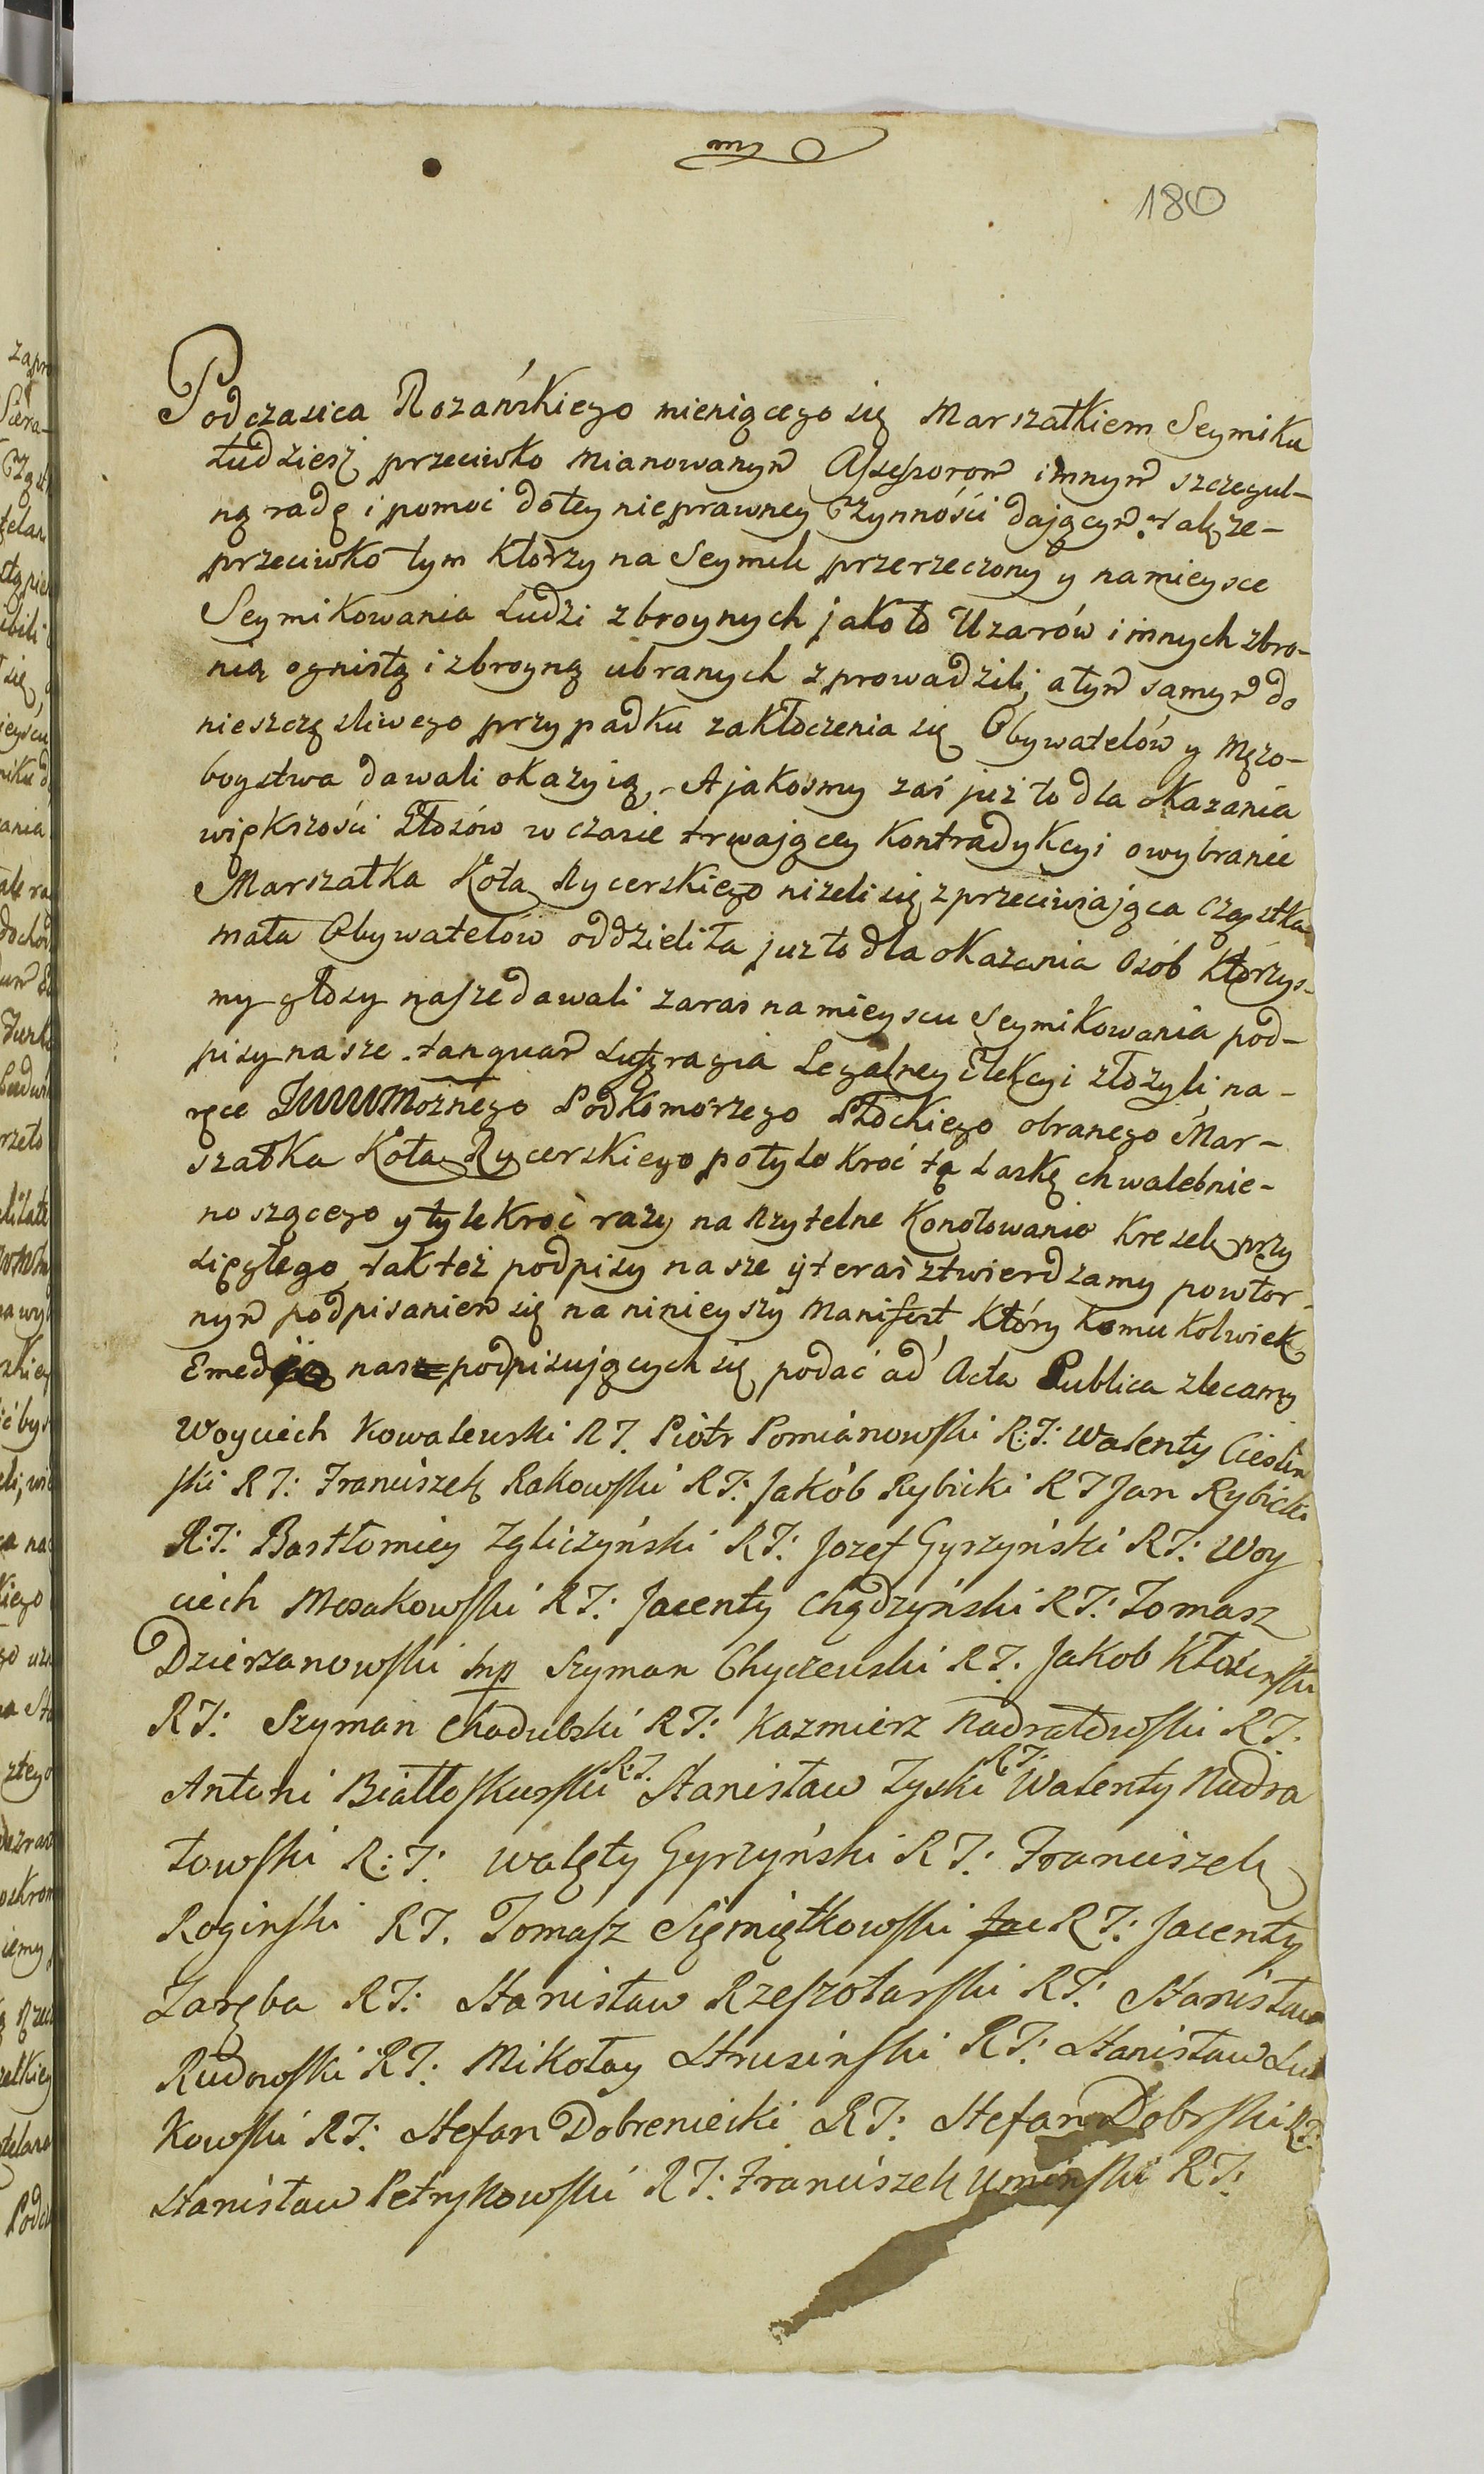 180
Podczasica Rozańskiego mieniącego się Marszałkiem Seymiku
tudziesz przeciwko mianowanym Assessorom innym szczegul-
ną radę i pomoc do tey nieprawney Czynności dającym. także-
przeciwko tym ktorzy na Seymik przerzeczony y namieysce
Seymikowania Ludzi zbroynych jako to Uzarów i innych zbro-
nią ognistą i zbroyną ubranych zprowadzili, a tym samym do
nieszczęsliwego przypadku zakłoczenia się Obywatelów y Męzo-
boystwa dawali okazyią, A jakosmy zaś już to dla okazania
większości Głosów w czasie trwającey Kontradykcyi o wybranie
Marszałka Koła Rycerskiego nizeli się zprzeciwiająca Cząstka
mała Obywatelów oddzieliła juz to dla okazania Osób Którzys-
my głosy nasze dawali zaras na mieyscu Seymikowania pod-
pisy nasze tanquam suffragia Legalney Elekcyi złożyli na-
ręce JWW Możnego Podkomorzego Płockiego obranego Mar-
szałka Koła Rycerskiego po tylo kroć tę Laskę chwalebnie-
noszącego y tylekroć razy na rzytelne Konotowanie Kresek przy
sięgłego, tak też podpisy nasze y teras ztwierdzamy powtor-
nym podpisaniem się na ninieyszy Manifest, Który komukolwiek
E medio nas podpisujących się podać ad Acta Publica zlecamy
Woyciech Kowalewski RT. Piotr Pomianowski R:T: Walenty Cieslin
ski RT: Franciszek Rakowski RT: Jakób Rybicki RT Jan Rybicki
R:T: Bartłomiey Zgliczyński RT: Jozef Gyrzyński RT: Woy
ciech Mosakowski RT: Jacenty Chądzyński RT: Tomasz
Dzierzanowski mp Szyman Chyczewski RT. Jakob Kłosinski
RT: Szyman Chadulski RT: Kazmierz Nadratowski RT.
Antoni Białłoskurski R:T. Stanisław Zyski RT: Walenty Nadra
towski R:T: Walęty Gyrzyński RT: Franciszek
Roginski RT. Tomasz Sięmiątkowski Jac RT: Jacenty
Zaręba RT: Stanisław Rzeszotarski RT: Stanisław
Rudowski RT: Mikołay Strusinski RT: Stanisław Lut
kowski RT: Stefan Dobreniecki RT: Stefan Dobrski R:T:
Stanisław Petrykowski RT: Franciszek Uminski RT: